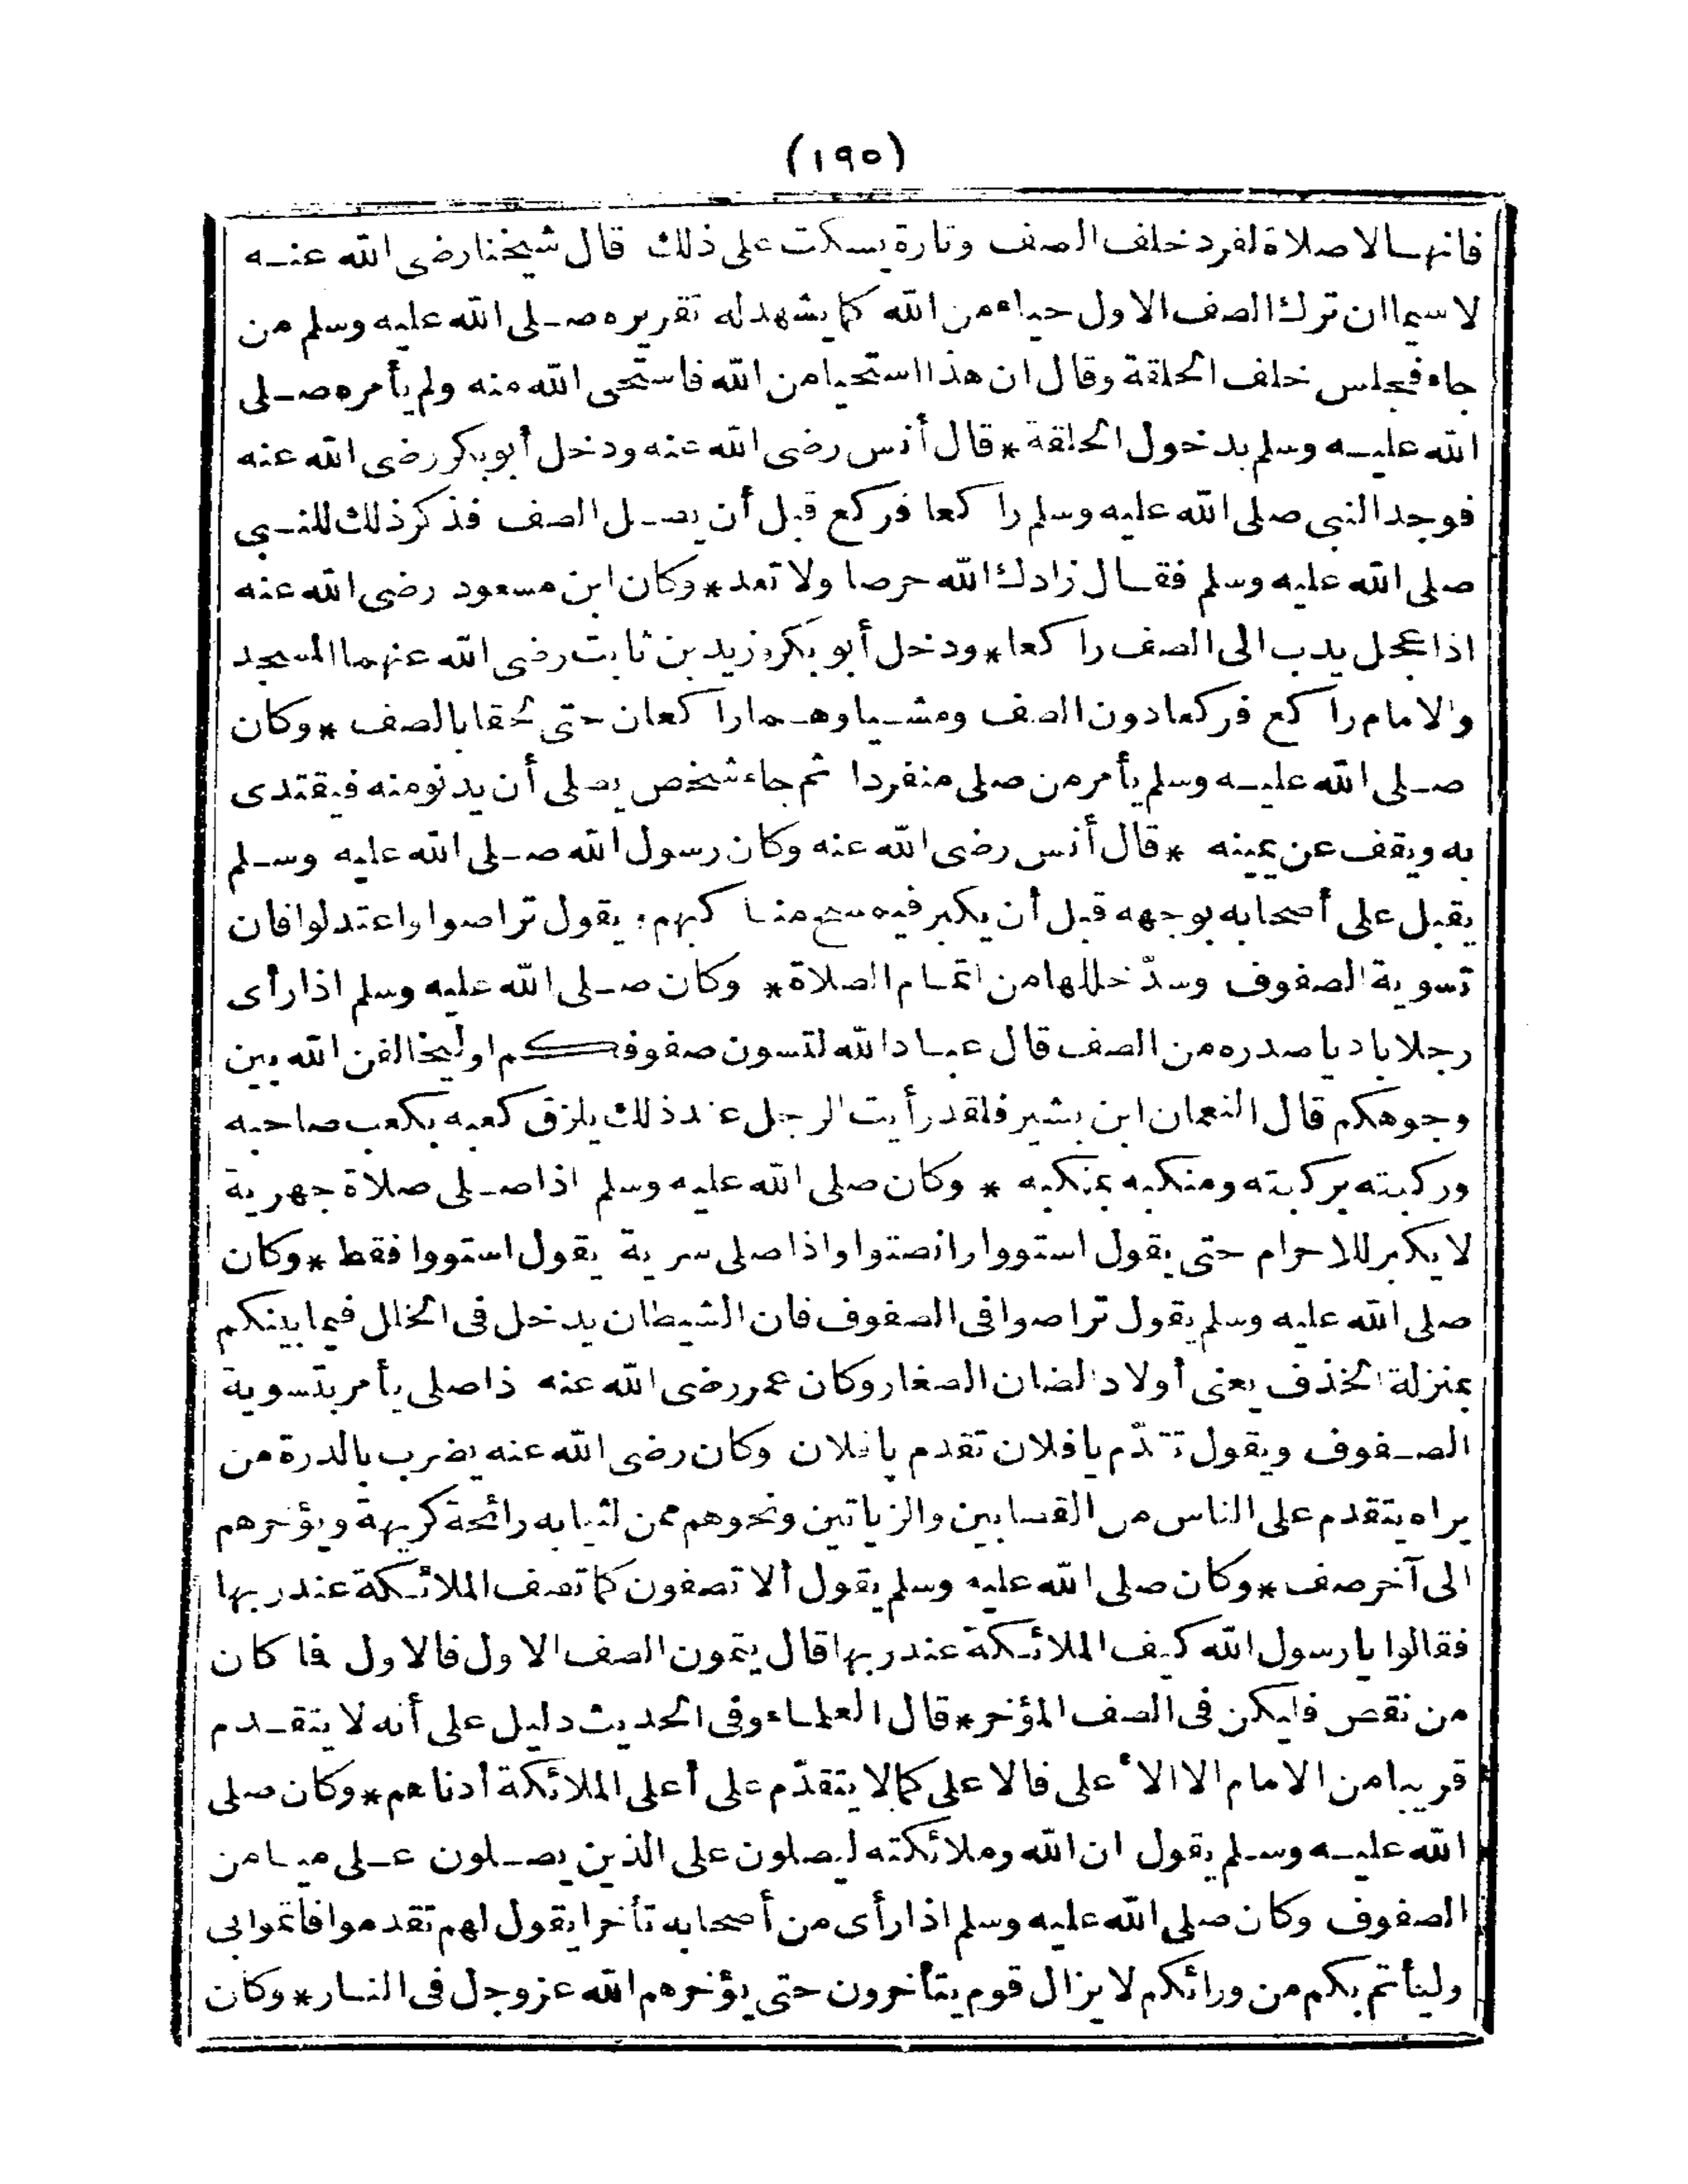 (١٩٥)
فانها لا صلاة لفرد خلف الصف وتارة يسكت على ذلك قال شيخنا رضى الله عنه
لا سيما ان ترك الصف الاول حياء من الله كما يشهد له تقريره صلى الله عليه وسلم من
جاء فجلس خلف الحلقة وقال ان هذا استحيا من الله فاستحى الله منه ولم يأمره صلى
الله عليه وسلم بدخول الحلقة * قال أنس رضى الله عنه ودخل أبو بكر رضى الله عنه
فوجد النبى صلى الله عليه وسلم را كعا فركع قبل أن يصل الصف فذكر ذلك للنبى
صلى الله عليه وسلم فقال زادك الله حرصا ولا تعد * وكان ابن مسعود رضى الله عنه
اذا عجل يدب الى الصف را كعا * ودخل أبو بكر وزيد بن ثابت رضى الله عنهما المسجد
والامام را كع فركعا دون الصف ومشيا وهما را كعان حتى لحقا بالصف * وكان
صلى الله عليه وسلم يأمر من صلى منفردا ثم جاء شخص يصلى أن يدنو منه فيقتدى
به ويقف عن يمينه * قال أنس رضى الله عنه وكان رسول الله صلى الله عليه وسلم
يقبل على أصحابه بوجهه قبل أن يكبر فيمسح منا كبهم ويقول تراصوا واعتدلوا فان
تسوية الصفوف وسدّ خللها من اتمام الصلاة * وكان صلى الله عليه وسلم اذا رأى
رجلا باديا صدره من الصف قال عباد الله لتسون صفوفكم او ليخالفن الله بين
وجوهكم قال النعمان ابن بشير فلقد رأيت الرجل عند ذلك يلزق كعبه بكعب صاحبه
وركبته بركبته ومنكبه بمنكبه * وكان صلى الله عليه وسلم اذا صلى صلاة جهرية
لا يكبر للاحرام حتى يقول استووا وانصتوا واذا صلى سرية يقول استووا فقط * وكان
صلى الله عليه وسلم يقول تراصوا فى الصفوف فان الشيطان يدخل فى الخلل فيما بينكم
بمنزلة الخذف يعنى أولاد الضان الصغار وكان عمر رضى الله عنه ذا صلى يأمر بتسوية
الصفوف ويقول تقدّم يا فلان تقدم يا فلان وكان رضى الله عنه يضرب بالدرة من
يراه يتقدم على الناس من القصابين والزياتين ونحوهم ممن لثيابه رائحة كريهة ويؤخرهم
الى آخر صف * وكان صلى الله عليه وسلم يقول ألا تصفون كما تصف الملائكة عند ربها
فقالوا يا رسول الله كيف الملائكة عند ربها قال يتمون الصف الاول فالاول فما كان
من نقص فليكن فى الصف المؤخر * قال العلماء وفى الحديث دليل على أنه لا يتقدم
قريبا من الامام الا الأعلى فالاعلى كما لا يتقدّم على أعلى الملائكة أدناهم * وكان صلى
الله عليه وسلم يقول ان الله وملائكته ليصلون على الذين يصلون على ميامن
الصفوف وكان صلى الله عليه وسلم اذا رأى من أصحابه تأخرا يقول لهم تقدموا فأتموا بى
وليأتم بكم من ورائكم لا يزال قوم يتأخرون حتى يؤخرهم الله عز وجل فى النار * وكان